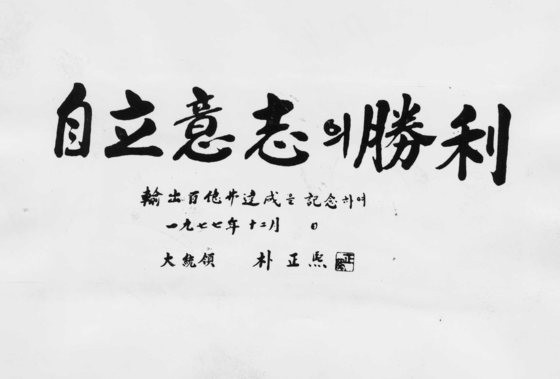 自立意志의勝利
輸出百億弗達成을 記念하여
一九七七年 十二月 日
大統領 朴正熙